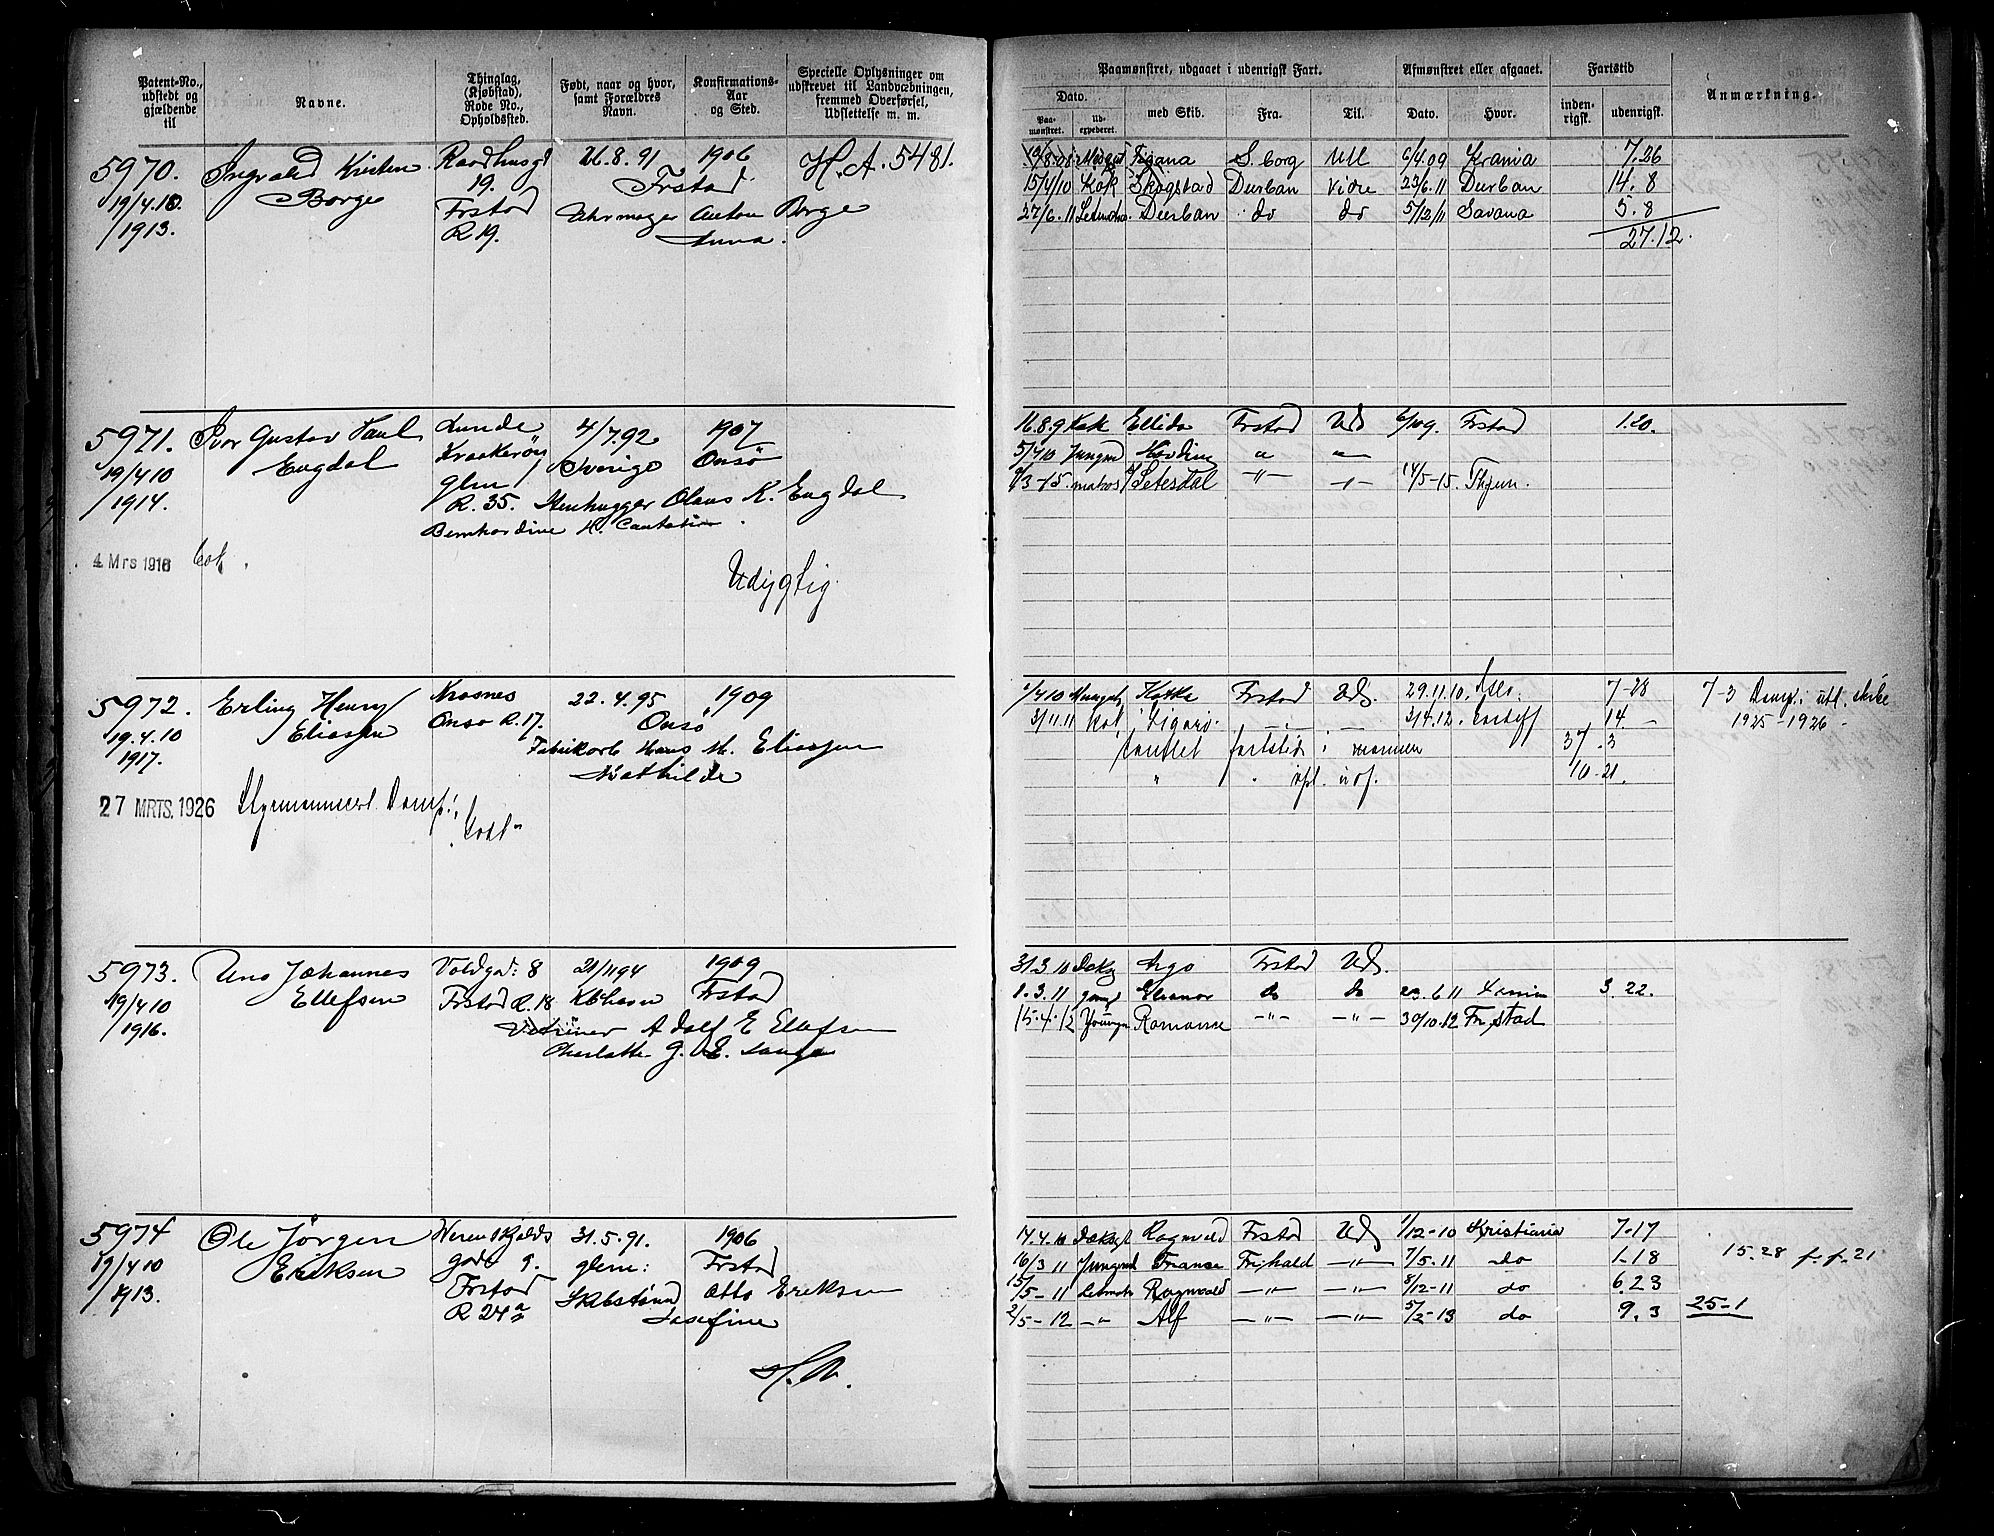 Patent-No., udstedt og gjældende til
Navne.
Thinglag, (Kjøbstad), Rode No., Opholdssted.
Født, naar og hvor, samt Forældres Navn.
Konfirmations-Aar og Sted.
Specielle Oplysninger om udskrevet til Landvæbningen, fremmed Overførsel, Udslettelse m. m.
Paamønstret, udgaaet i udenrigsk Fart.
Afmønstret eller afgaaet.
Fartstid
Anmærkning.
Dato.
Paa-mønstret.
Ud-expederet.
med Skib.
Fra.
Til.
Dato.
Hvor.
inden-rigsk.
udenrigsk.
5970. Ingvald Kristen Raadhusgt 26.8.91 1906 H.A. 5481.
19/4.10. Borge 19. Frstad
/1913. Frstad Uhrmager Anton Borge
R 19. Anna.
19/8.08 Tijana S.borg Ull 6/4.09 Krania 7.26
15/4/10 Kok Skogstad Durban Vidre 23/6.11 Durban 14.8
27/6.11 Letmatr. Durban do do 5/12/11 Savana 5.8
27.12.
5971. Ivar Gustav Paul Lunde 4/7.92 1907
19/4 10 Engdal Kraakerøy Sverige Onsø
/1914. glem
R. 35. Stenhugger Olaus K. Engdal
Bernhardine M.
4 Mrs 1916
Udygtig.
16.8.9 Kok Ellida Frstad Uds 6/10 9. Frstad 1.20.
5/4 10 Jungmd Hövding " "
3-15. matros Setesdal -"- -"- 14/5-15. Thjem.
5972. Erling Henry Krosnes 22.4.95 1909
19.4.10 Eliassen Onsø R.17. Onsø
1917. Fabrikarb Hans M. Eliassen
Mathilde
27 MRTS. 1926 Styrmannscert. Damp.
/4 10 Kakka Frstad Uds. 29.11.10. 7-28 7-3 Damp. i utl. skibe
3/11.11 Kok Figaro. 3/4.12. Cardiff 14 - 1925-1926 -
fartstid i marinen 37.3
" " 10-21.
5973. Uno Johannes Voldgad: 8 21/11 94 1909
19/4 10 Ellefsen Frstad R. 18 Kbhavn Frstad
/1916. Adolf E Ellefsen
Charlotte G. E. Lange
31.3.10 Dekg Argo Frstad Uds.
1.3.11 Eleanor do do 23.6 11 3.22.
15.4.12 Youngm Romance -"- -"- 30/10.12 Fr.stad
5974 Ole Jörgen Werenskjolds 31.5.91. 1906
19/4 10 Eriksen gade 9. glem: Frstad
/1913. Frstad Otto Eriksen
R 24a Josefine
H.V.
14.4.10 Dæksgt Ragnvald Frstad Uds 1/12-10 Kristiania 7-17
16/3 11 Jungmd France Fr.hald -"- 7/5-11 do 1-18 15.28 f.f. 21
15/5-11 Letmatr Ragnvald -"- -"- 8/12-11 do 6.23
2/5-12 -"- Alf -"- -"- 5/2-13 do 9.3 25-1